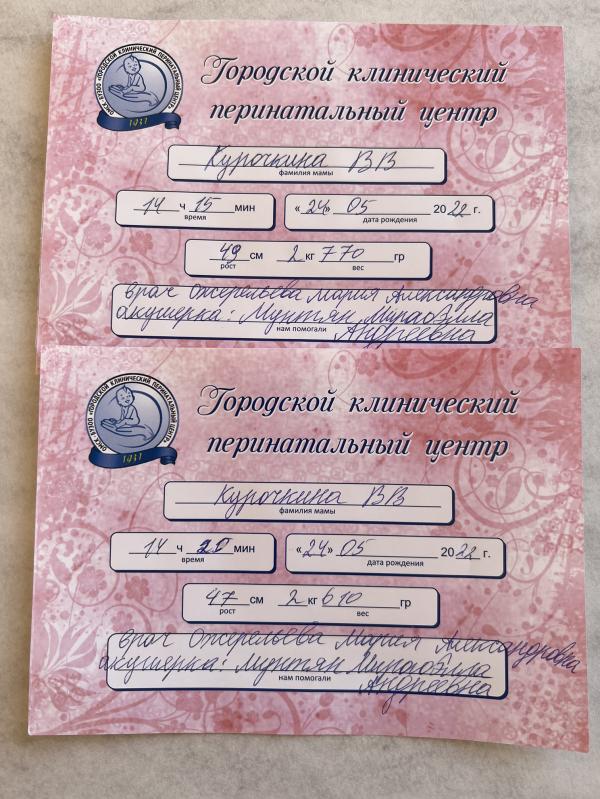 ОМСК БУЗОО «ГОРОДСКОЙ КЛИНИЧЕСКИЙ ПЕРИНАТАЛЬНЫЙ ЦЕНТР»
1937
Городской клинический
перинатальный центр
Курочкина ВВ
фамилия мамы
14 ч 15 мин «24» 05 2022 г.
время дата рождения
49 см 2 кг 770 гр
рост вес
врач Ожерельева Мария Александровна
акушерка: Мунтян
нам помогали Андреевна
ОМСК БУЗОО «ГОРОДСКОЙ КЛИНИЧЕСКИЙ ПЕРИНАТАЛЬНЫЙ ЦЕНТР»
1937
Городской клинический
перинатальный центр
Курочкина ВВ
фамилия мамы
14 ч 20 мин «24» 05 2022 г.
время дата рождения
47 см 2 кг 610 гр
рост вес
врач Ожерельева Мария Александровна
акушерка: Мунтян
нам помогали Андреевна